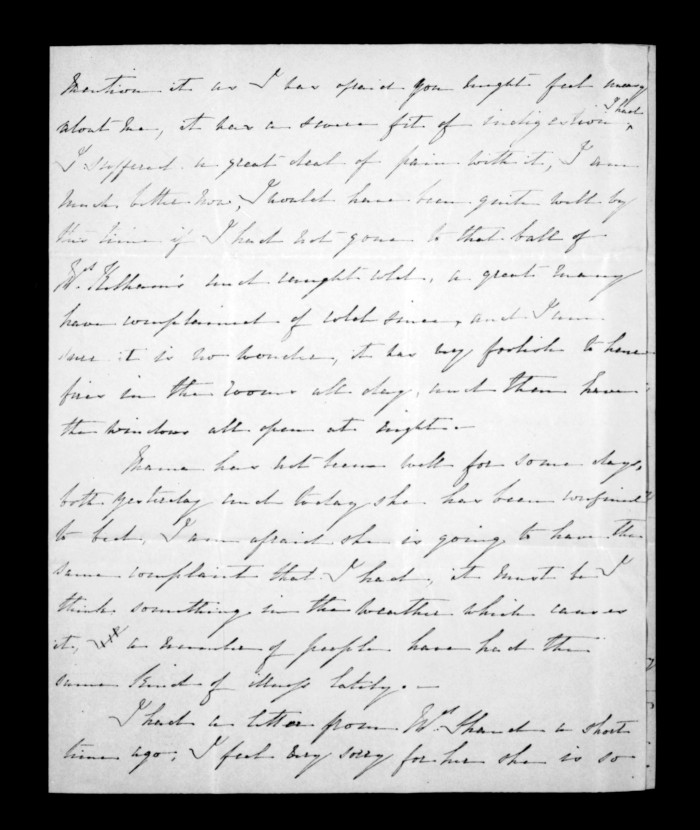 Mention it as I was afraid you might feel uneasy
about me, it was a severe fit of indigestion I had,
I suffered a great deal of pain with it, I am
much better now, I would have been quite well by
this time if I had not gone to that ball of
Mrs. and caught cold, a great many
have complained of cold since, and I am
sure it is no wonder, it was very foolish to have
fires in the rooms all day, and then have
the windows all open at night. -
Mama has not been well for some days,
both yesterday and today she has been confined
to bed, I am afraid she is going to have the
same complaint that I had, it must be I
think something in the weather which causes
it, a number of people have had the
same kind of illness lately. -
I had a letter from Mrs. a short
time ago, I feel very sorry for her she is so